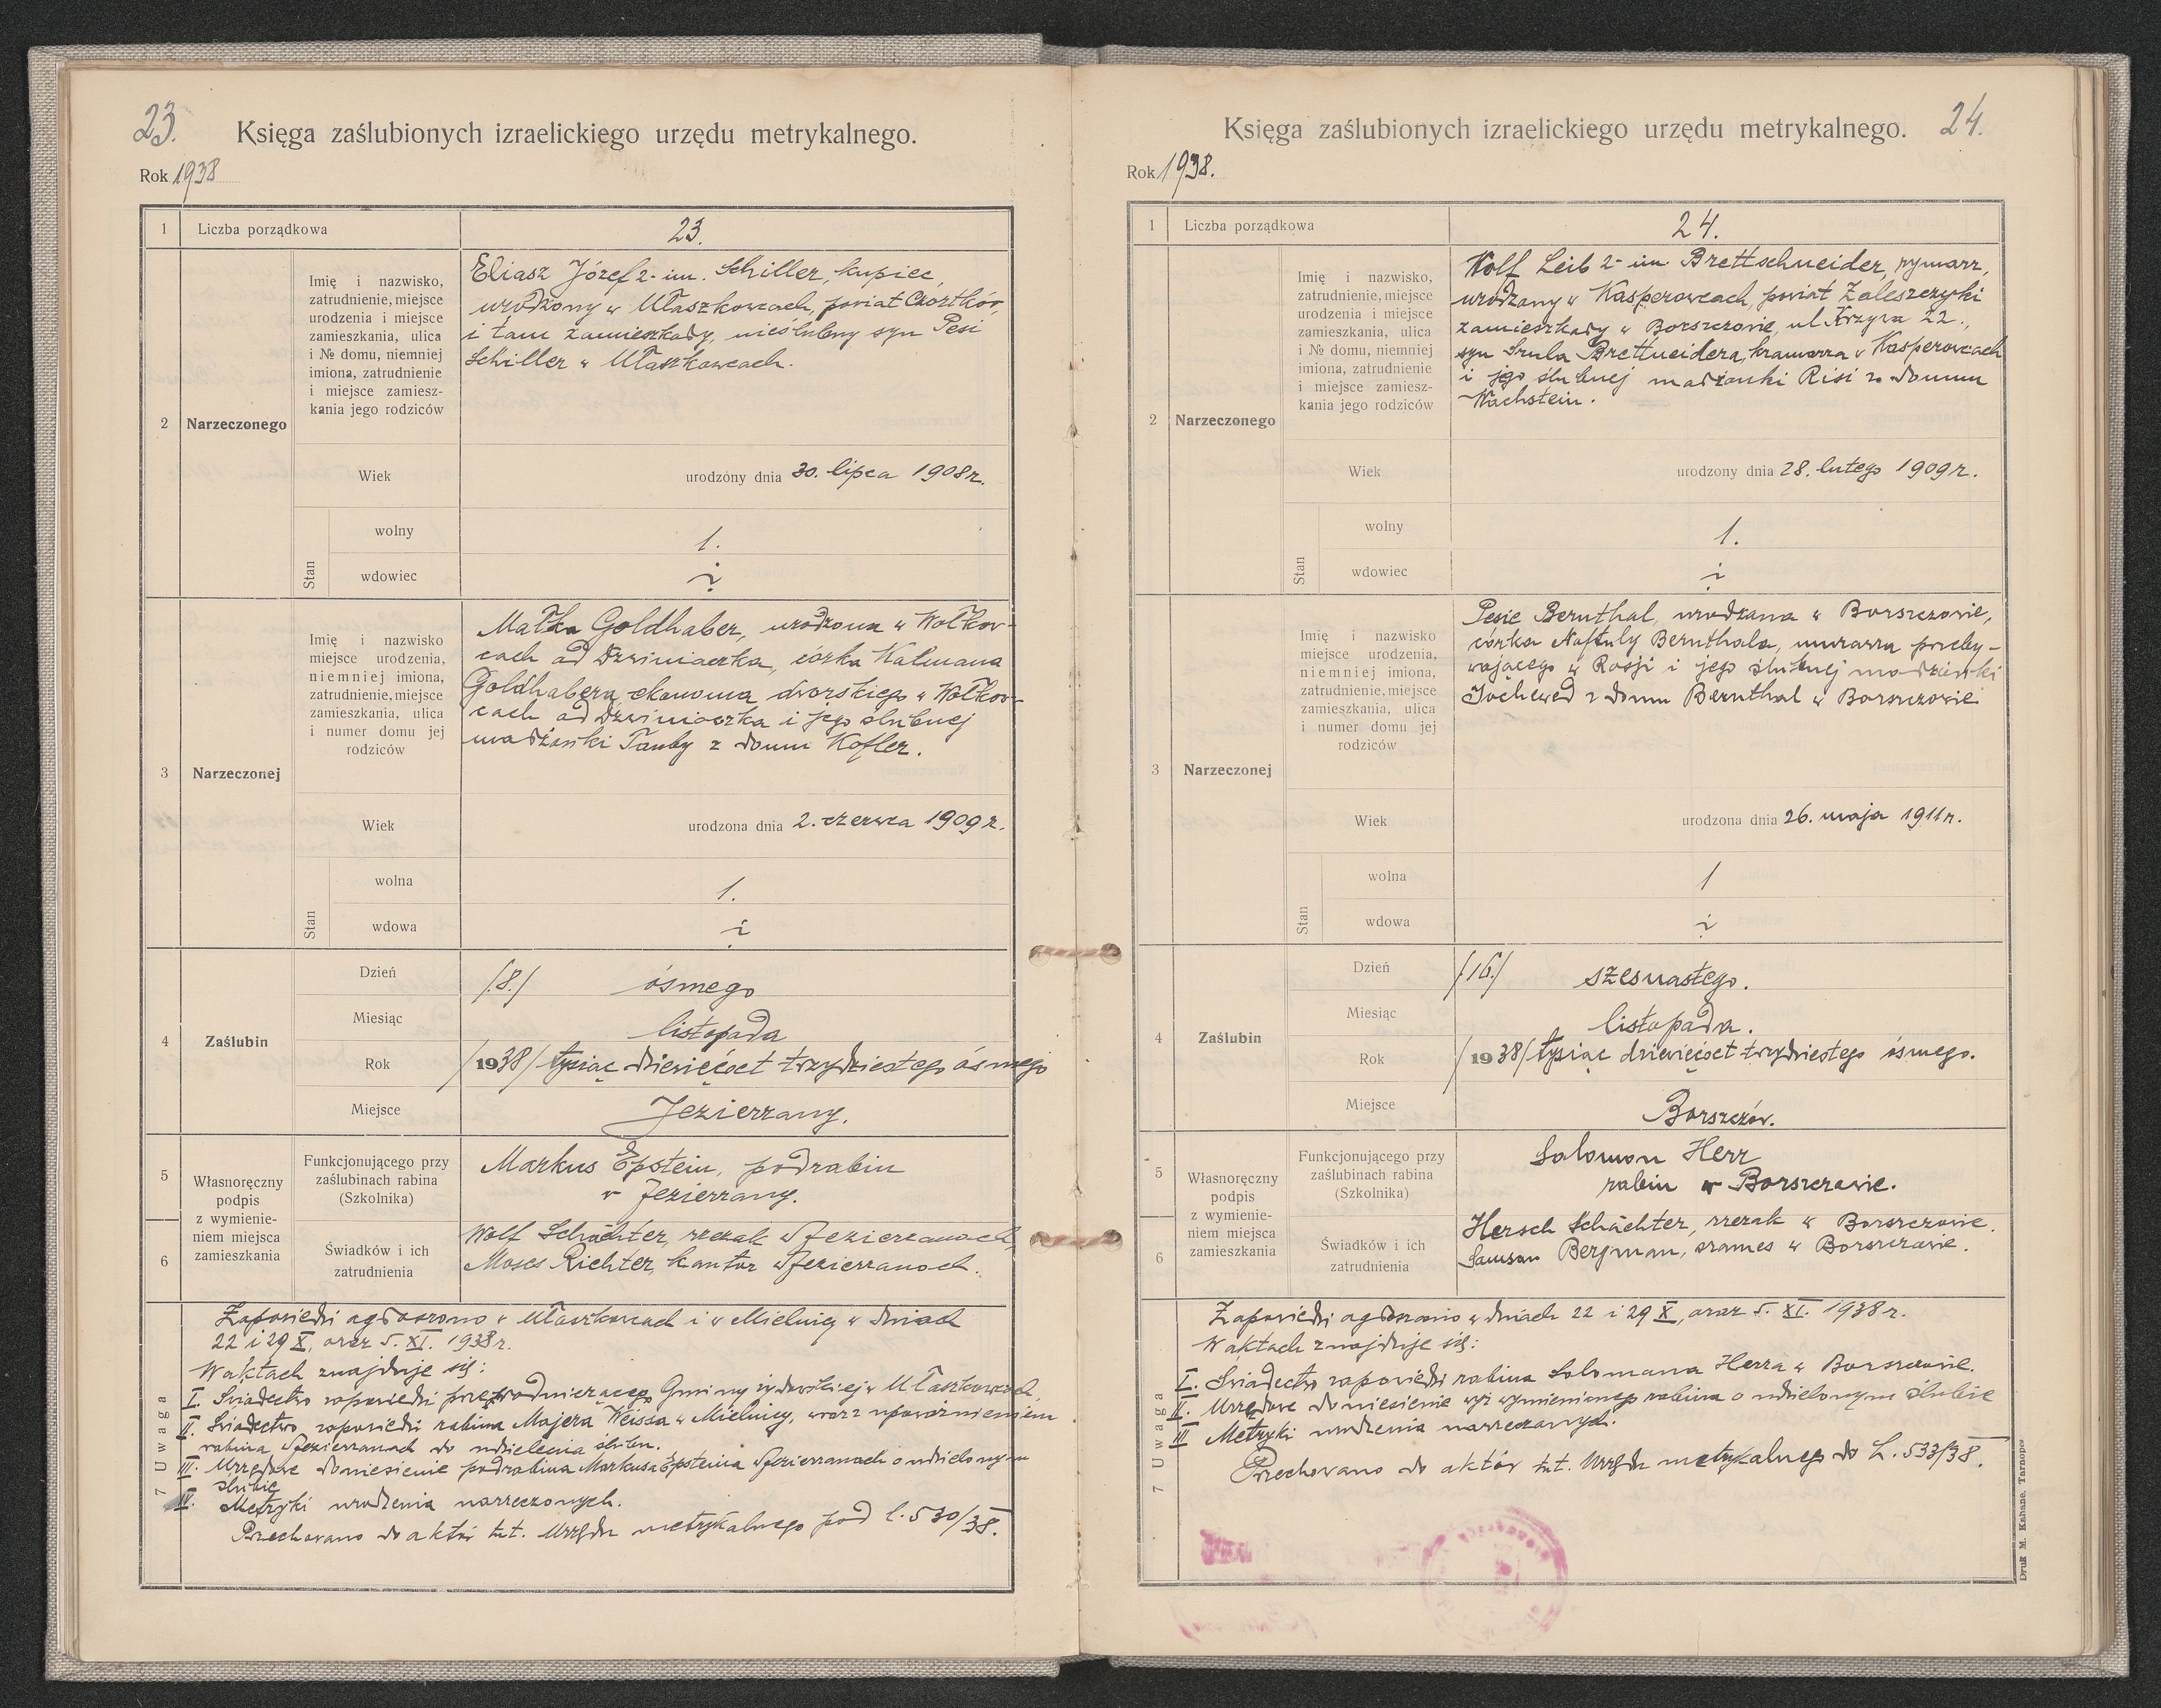 23.
Księga zaślubionych izraelickiego urzędu metrykalnego.
Rok 1938
1 Liczba porządkowa 23.
2 Narzeczonego
Imię i nazwisko,
zatrudnienie, miejsce
urodzenia i miejsce
zamieszkania, ulica
i № domu, niemniej
imiona, zatrudnienie
i miejsce zamiesz-
kania jego rodziców
Eliasz Józef 2-im. Schiller, kupiec,
urodzony w Ułaszkowcach, powiat Czortków,
i tam zamieszkały, nieślubny syn Pesi
Schiller w Ułaszkowcach.
Wiek urodzony dnia 30. lipca 1908 r.
Stan
wolny 1.
wdowiec
3 Narzeczonej
Imię i nazwisko
miejsce urodzenia,
niemniej imiona,
zatrudnienie, miejsce
zamieszkania, ulica
i numer domu jej
rodziców
Małka Goldhaber, urodzona w Wołkow-
cach ad Dzwiniaczka, córka Kalmana
Goldhabera, ekonoma dworskiego w Wołkow-
cach ad Dzwiniaczka i jego ślubnej
małżonki Tauby z domu Kofler.
Wiek urodzona dnia 2. czerwca 1909 r.
Stan
wolna 1.
wdowa
4 Zaślubin
Dzień /8./ ósmego
Miesiąc listopada
Rok /1938/ tysiąc dziewięćset trzydziestego ósmego
Miejsce Jezierzany.
Własnoręczny
podpis
z wymienie-
niem miejsca
zamieszkania
5 Funkcjonującego przy
zaślubinach rabina
(Szkolnika)
Markus Epstein, podrabin
w Jezierzany.
6 Świadków i ich
zatrudnienia
Wolf Schächter, rzezak w Jezierzanach,
Moses Richter, kantor w Jezierzanach.
7 Uwaga
Zapowiedzi ogłoszono w Ułaszkowcach i w Mielnicy w dniach
22 i 29 X, oraz 5. XI. 1938 r.
W aktach znajduje się:
I. Świadectwo zapowiedzi przewodniczącego Gminy żydowskiej w Ułaszkowcach.
II. Świadectwo zapowiedzi rabina Majera Weissa w Mielnicy, wraz z upoważnieniem
rabina w Jezierzanach do udzielenia ślubu.
III. Urzędowe doniesienie podrabina Markusa Epsteina w Jezierzanach o udzielonym
ślubie
IV. Metryki urodzenia narzeczonych.
Przechowano do aktów tut. Urzędu metrykalnego pod l. 530/38.
24.
Księga zaślubionych izraelickiego urzędu metrykalnego.
Rok 1938.
1 Liczba porządkowa 24.
2 Narzeczonego
Imię i nazwisko,
zatrudnienie, miejsce
urodzenia i miejsce
zamieszkania, ulica
i № domu, niemniej
imiona, zatrudnienie
i miejsce zamiesz-
kania jego rodziców
Wolf Leib 2-im Brettschneider, rymarz,
urodzony w Kasperowcach, powiat Zaleszczyki
zamieszkały w Borszczowie, ul. Krzywa 22.,
syn Srula Brettneidera, kramarza w Kasperowcach
i jego ślubnej małżonki Risi z domu
Wachstein.
Wiek urodzony dnia 28. lutego 1909 r.
Stan
wolny 1.
wdowiec
3 Narzeczonej
Imię i nazwisko
miejsce urodzenia,
niemniej imiona,
zatrudnienie, miejsce
zamieszkania, ulica
i numer domu jej
rodziców
Pesie Bernthal, urodzona w Borszczowie,
córka Naftuly Bernthala, murarza przeby-
wającego w Rosji i jego ślubnej małżonki
Jochewed z domu Bernthal w Borszczowie
Wiek urodzona dnia 26. maja 1911 r.
Stan
wolna 1
wdowa
4 Zaślubin
Dzień /16./ szesnastego.
Miesiąc listopada.
Rok /1938/ tysiąc dziewięćset trzydziestego ósmego.
Miejsce Borszczów.
Własnoręczny
podpis
z wymienie-
niem miejsca
zamieszkania
5 Funkcjonującego przy
zaślubinach rabina
(Szkolnika)
Salomon Herr
rabin w Borszczowie.
6 Świadków i ich
zatrudnienia
Hersch Schächter, rzezak w Borszczowie.
Samson Bergman, szames w Borszczowie.
7 Uwaga
Zapowiedzi ogłoszono w dniach 22 i 29 X, oraz 5. XI. 1938 r.
W aktach znajduje się:
I. Świadectwo zapowiedzi rabina Salomona Herra w Borszczowie.
II. Urzędowe doniesienie wyż wymienionego rabina o udzielonym ślubie
III Metryki urodzenia narzeczonych.
Przechowano do aktów tut. Urzędu metrykalnego do L. 533/38.
Druk M. Kahane, Tarnopol